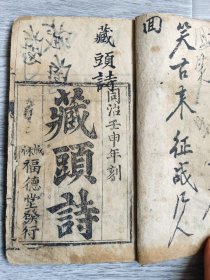 藏頭詩
同治壬申年刻
藏頭詩
福德堂發行
回
笑古来征战几人